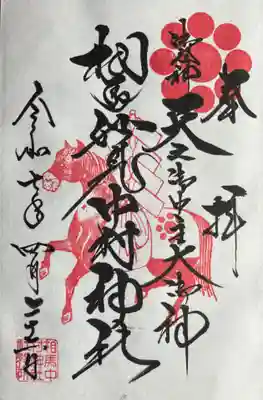 奉拝
御祭神 天之御中主大御神
相馬妙見中村神社
令和七年 四月二十二日
相馬中村神社